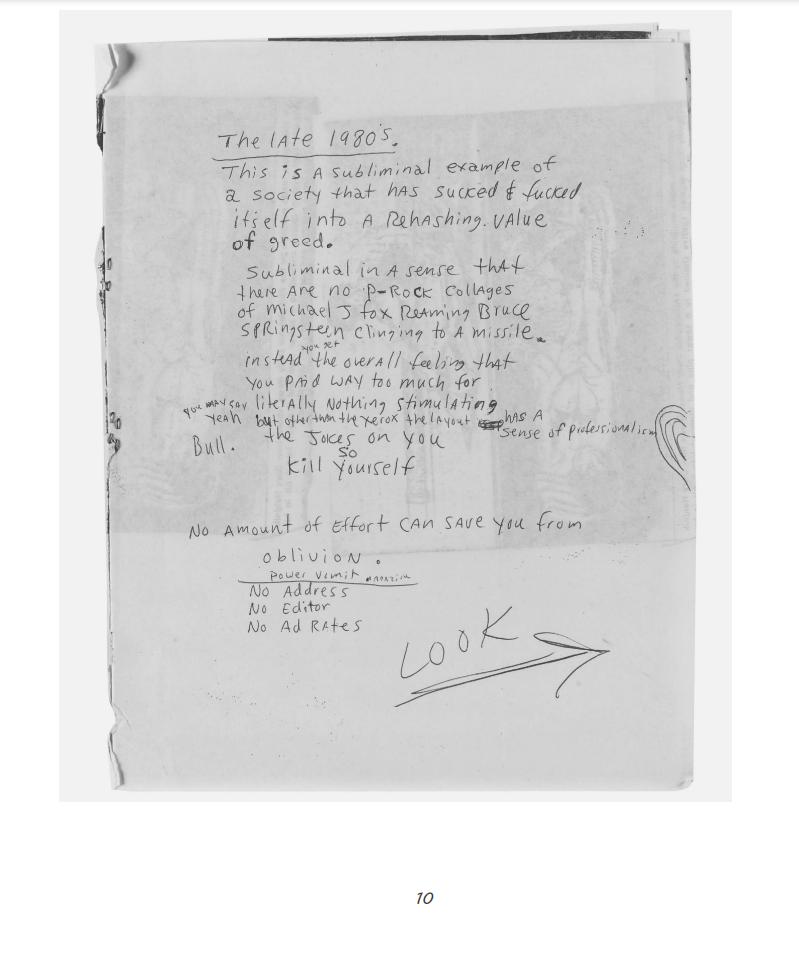 The late 1980's.
This is A subliminal example of
a society that has sucked & fucked
itself into A Rehashing. value
of greed.
Subliminal in A sense that
there Are no P-Rock Collages
of michael J fox Reaming Bruce
Springsteen clinging to A missile.
you get
instead the overall feeling that
you paid way too much for
literally Nothing stimulating
you may say
yeah but other than the xerox the layout has A
sense of professionalism
Bull. the Jokes on you
So
kill yourself
No Amount of Effort can save you from
oblivion.
Power Vomit magazine
No Address
No Editor
No Ad Rates
LOOK
10